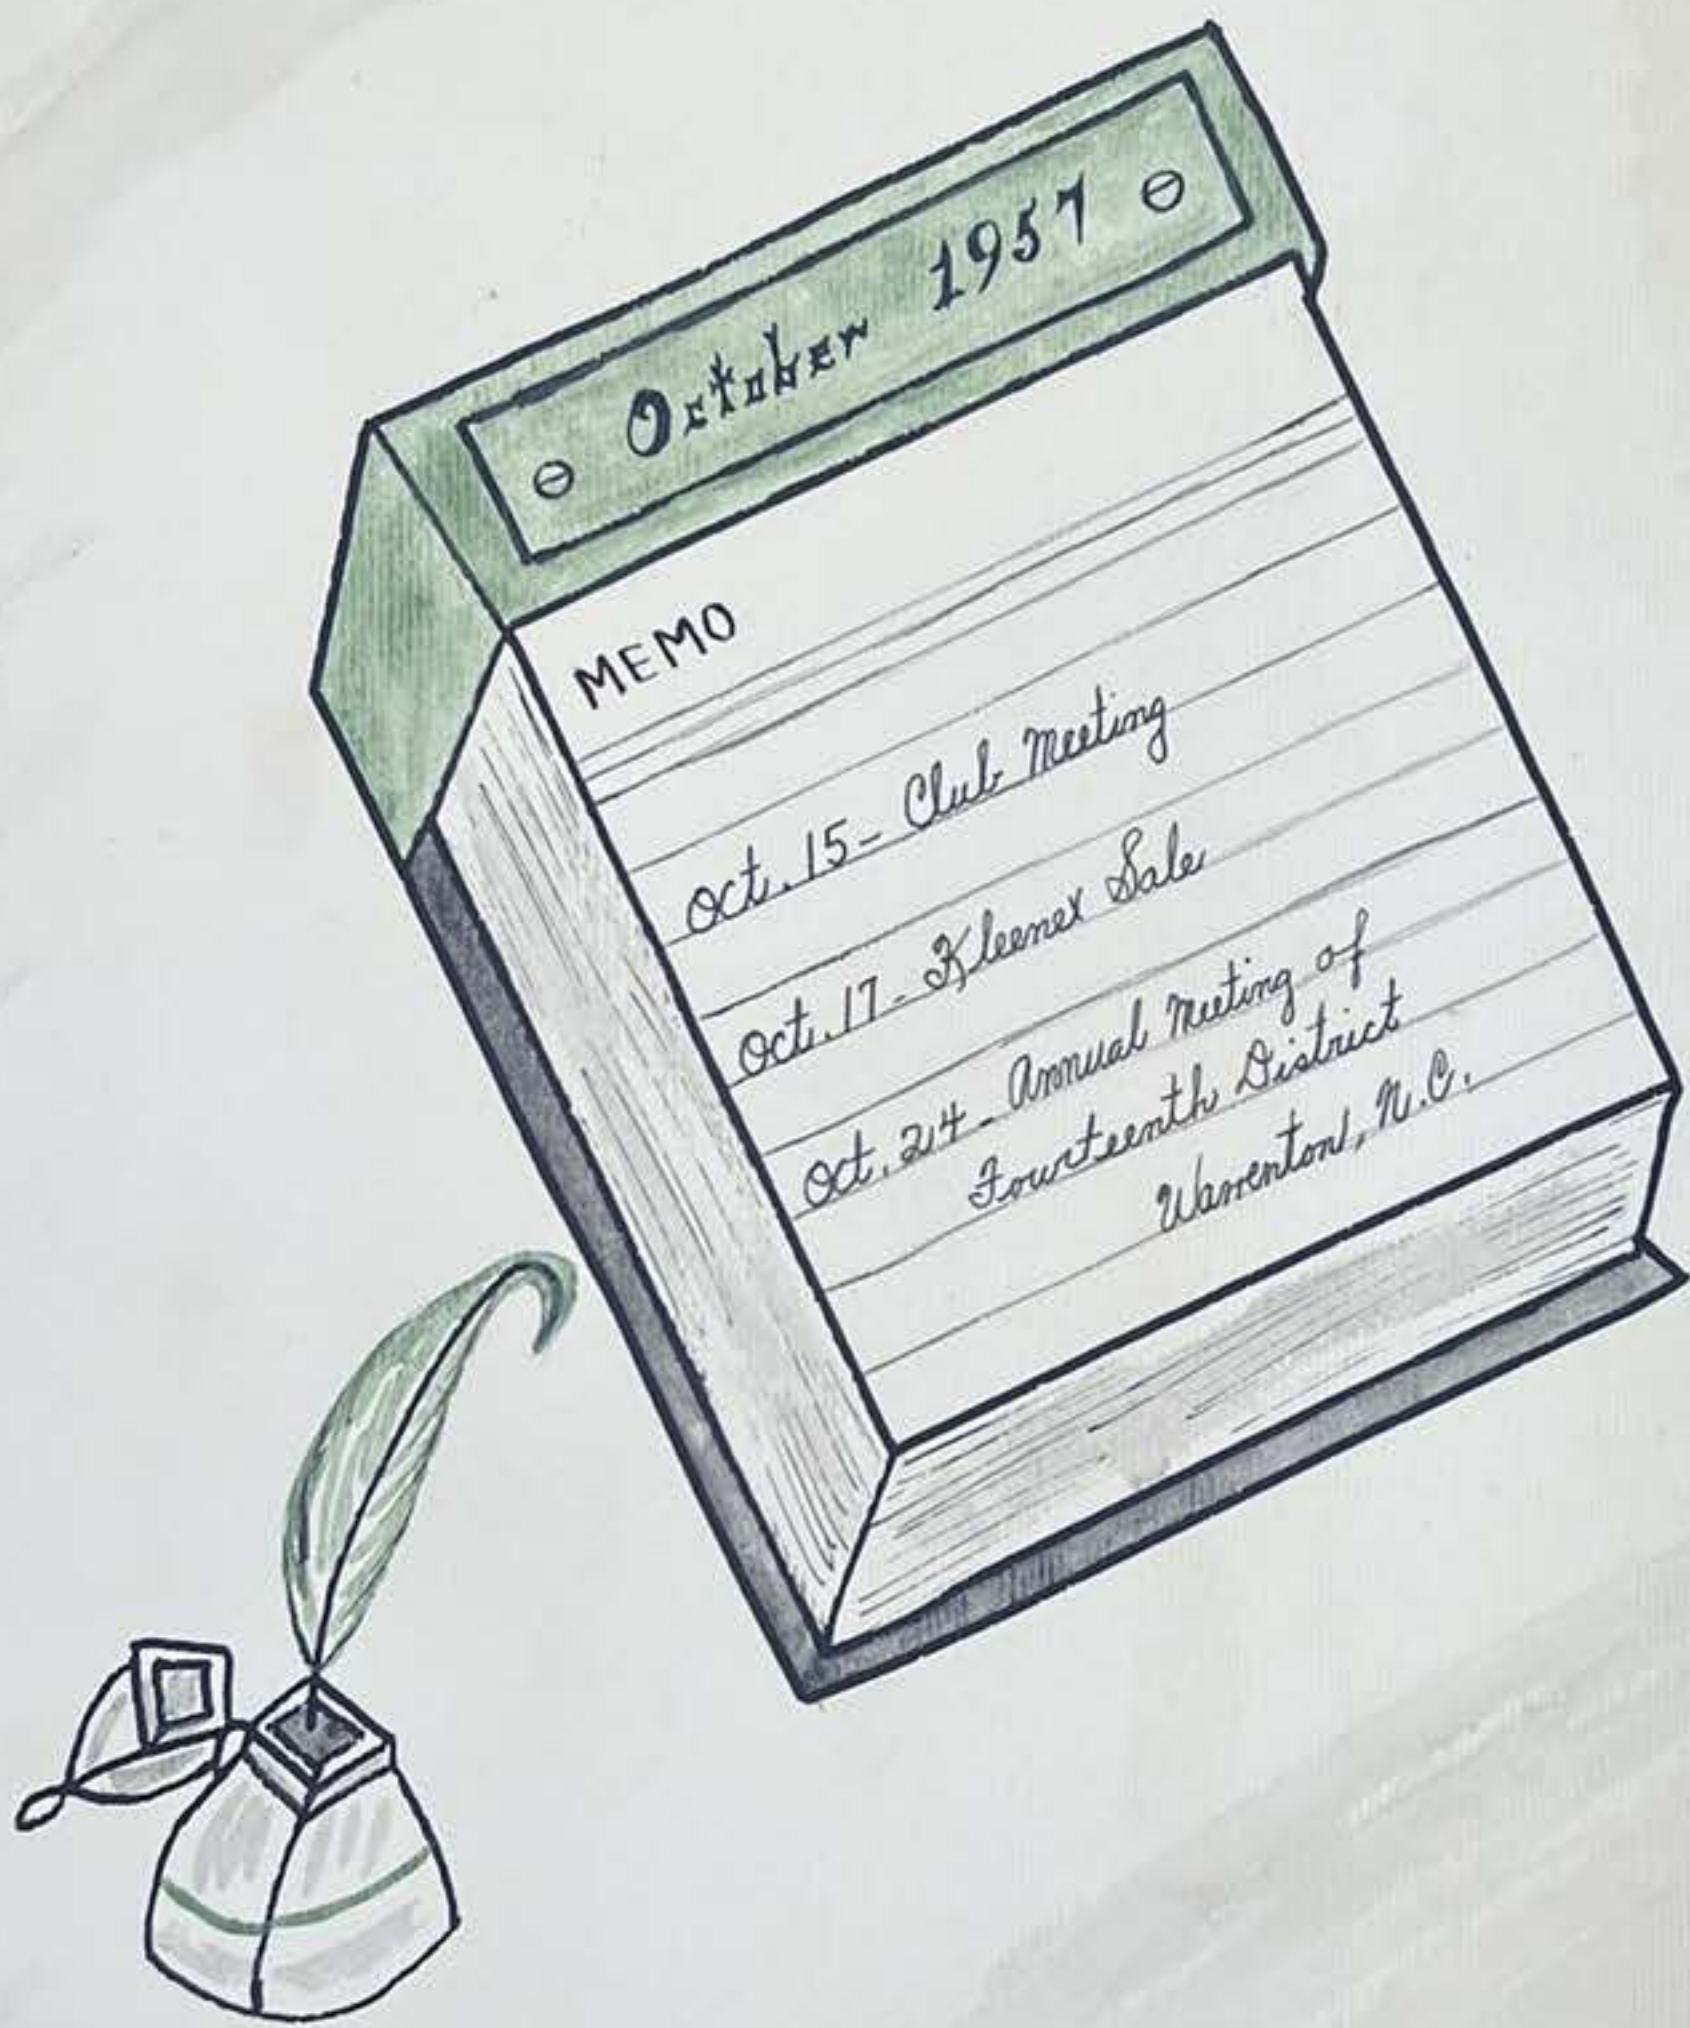 October 1957
MEMO
Oct. 15 - Club Meeting
Oct. 17 - Kleenex Sale
Oct. 24 - Annual Meeting of
Fourteenth District
Warrenton, N.C.